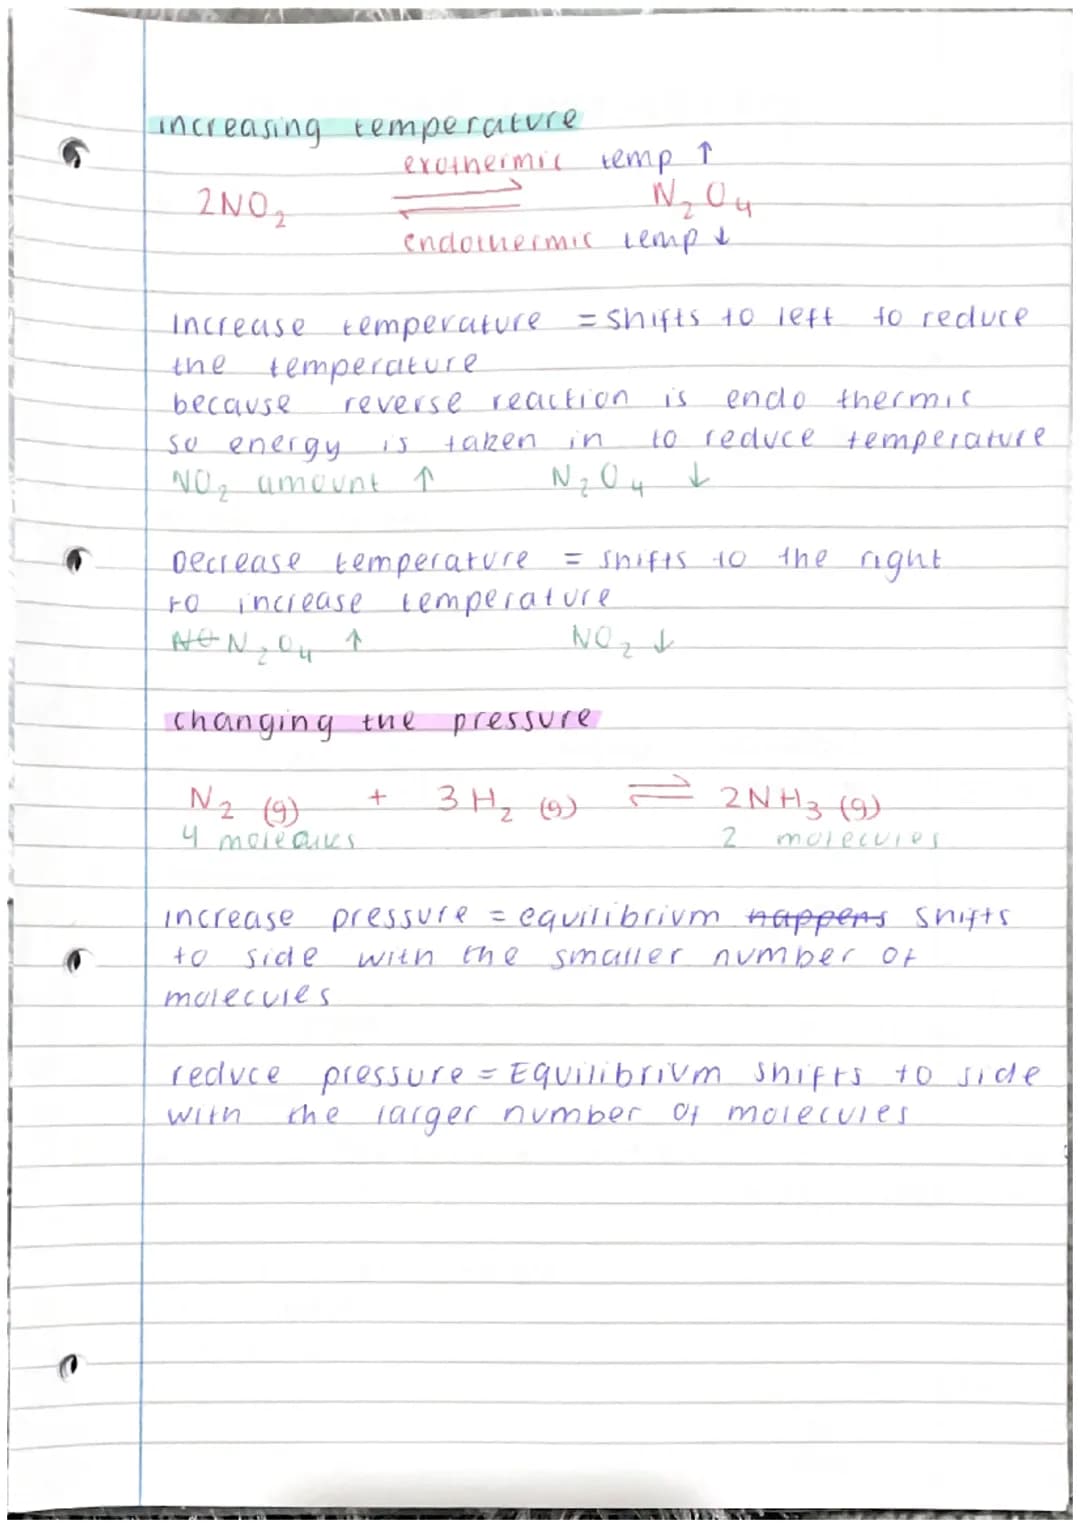 increasing temperature
exothermic temp ↑
2NO₂ ⇌ N₂O₄
endothermic temp ↓
Increase temperature = shifts to left to reduce
the temperature
because reverse reaction is endo thermic
so energy is taken in to reduce temperature
NO₂ amount ↑ N₂O₄ ↓
Decrease temperature = shifts to the right
to increase temperature
N₂O₄ ↑ NO₂ ↓
changing the pressure
N₂ (g) + 3H₂ (g) ⇌ 2NH₃ (g)
4 2 molecules
increase pressure = equilibrium happens shifts
to side with the smaller number of
molecules
reduce pressure = Equilibrium shifts to side
with the larger number of molecules